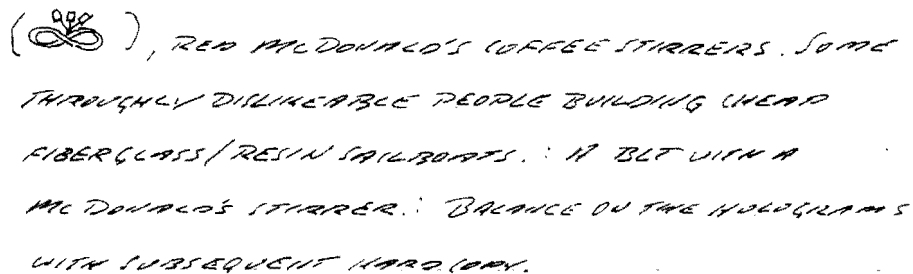 ( ), RED MCDONALD'S COFFEE STIRRERS. SOME
THROUGHLY DISLIKEABLE PEOPLE BUILDING CHEAP
FIBERGLASS/RESIN SAILBOATS. ∴ A BLT WITH A
MCDONALD'S STIRRER. ∴ BALANCE ON THE HOLOGRAMS
WITH SUBSEQUENT HARD COPY.